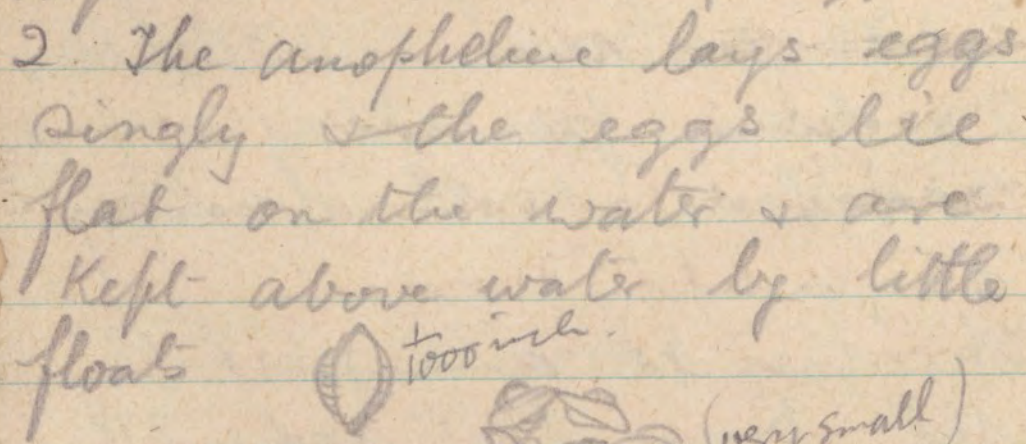 2. The anopheline lays eggs
singly & the eggs lie
flat on the water & are
Kept above water by little
floats
1/1000 inch.
(very small)